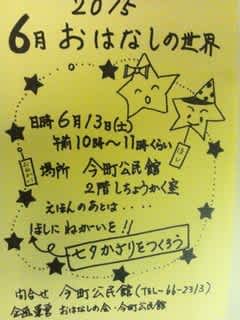 2015
6月 おはなしの世界
日時 6月13日(土)
午前10時〜11時くらい
場所 今町公民館
2階 しちょうかく室
えほんのあとは・・・・
ほしに ねがいを!!
七夕かざりをつくろう
問合せ 今町公民館(TEL-66-2313)
企画運営 おはなしの会・今町公民館